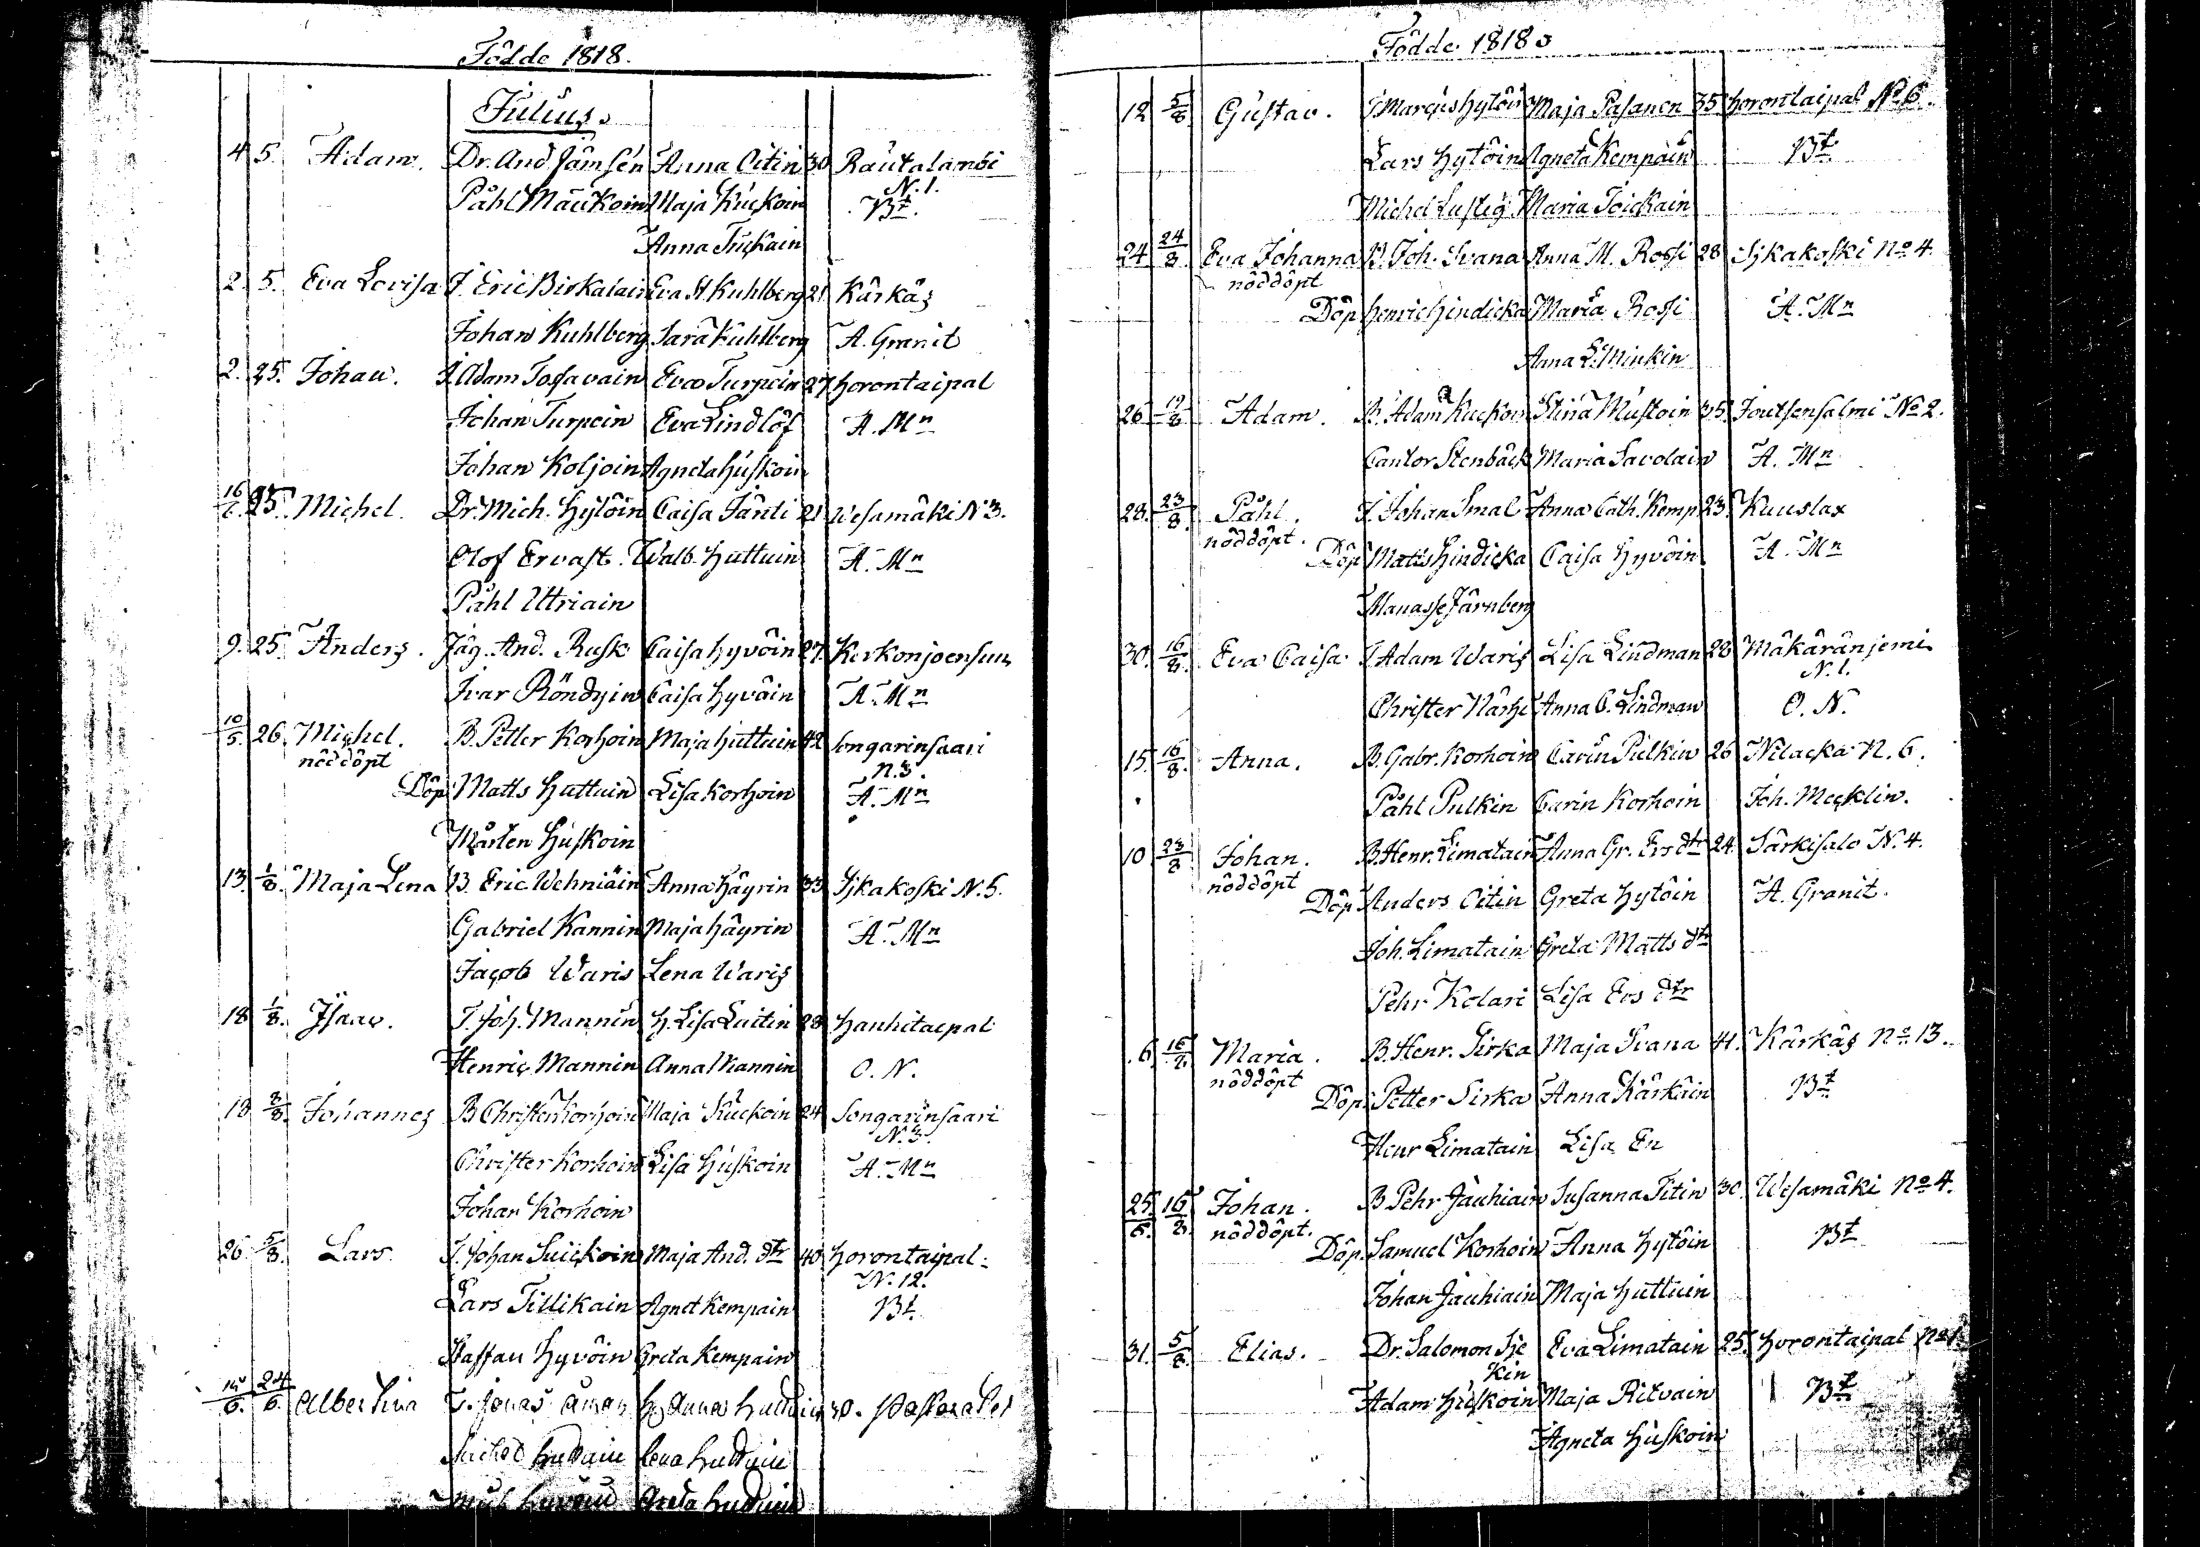 Födde 1818.
Julius.
4 5. Adam. Dr. And Jämsén Anna Oitin 30 Rautalambi
N. 1.
Påhl Maukoin Maja Kuckoin Bt.
Anna Tuckain
2. 5. Eva Lovisa T. Eric Birkalain Eva St Kuhlberg 21 Kärkäs
Johan Kuhlberg Sara Kuhlberg A. Granit
2. 25. Johan. I. Adam Tossavain Eva Turpein 27 Horontaipal
Johan Turpein Eva Lindlöf A. Mn
Johan Koljoin Agneta Huskoin
25. Michel. Dr. Mich. Hytöin Caisa Jänti 21 Wesamäki N 3.
Olof Ervast. Walb. Huttuin A. Mn
Påhl Utriain
9. 25. Anders. Jäg. And. Rusk Caisa Hyvöin 27. Kerkonjoensuu
Ivar Röndyin Caisa Hyvöin A. Mn
10/5. 26. Michel. B. Petter Korhoin Maja Huttuin 42 Songarinsaari
nöddöpt N. 3.
Döp. Matts Huttuin Lisa Korhoin A. Mn
Mårten Huskoin
13. 1/8. Maja Lena B. Eric Wehniäin Anna Häyrin 33 Ijkakoski N. 5.
Gabriel Kannin Maja Häyrin A. Mn
Jacob Waris Lena Waris
18 1/8. Isaac. T. Joh. Mannin H. Lisa Laitin 28 Hanhitaipal
Henric Mannin Anna Mannin O. N.
18 2/8. Johannes B Christer Korhoin Maja Kuckoin 24 Songarinsaari
N. 3.
Christer Korhoin Lisa Huskoin A. Mn
Johan Korhoin
26 5/8. Lars T. Johan Suickoin Maja And. dtr 40 Horontaipal
N. 12.
Lars Tillikain Agnet Kempain Bt.
Staffan Hyvöin Greta Kempain
24/6. Albertina T. Jonas Åman H. Anna Huttuin 30.
Michel Huttuin Lena Huttuin
Greta Huttuin
Födde 1818
12 5/8. Gustav. I Marcus Hytöin Maja Pasanen 35 Horontaipal No 6.
Lars Hytöin Agneta Kempain Bt
Michel Lustig Maria Toickain
24 24/8. Eva Johanna B. Joh. Ivana Anna M. Rossi 28 Ijkakoski No 4.
nöddöpt
Döp Henric Hindicka Maria Rossi A. Mn
Anna L. Minkin
26 12/8 Adam. B. Adam Kuckoin Stina Mustoin 35. Joutsensalmi No 2.
Cantor Stenbäck Maria Savolain A. Mn
28. 23/8. Påhl. I. Johan Smal Anna Cath. Kemp 23. Kuuslax
nöddöpt.
Döp Matts Hindicka Caisa Hyvöin A. Mn
Manasse Järnberg
30. 16/8. Eva Caisa I. Adam Waris Lisa Lindman 28 Mäkäränjemi
N. 1.
Christer Närhi Anna C. Lindman O. N.
15. 16/8. Anna. B. Gabr. Korhoin Carin Pulkin 26 Nilacka N. 6.
Påhl Pulkin Carin Korhoin Joh. Mecklin.
10 23/8 Johan. B. Henr. Limatain Anna Gr. Ers dtr 24. Särkisalo N. 4.
nöddöpt
Döp Anders Oitin Greta Hytöin A. Granit.
Joh. Limatain Greta Matts dtr
Pehr Kolari Lisa Ers dtr
6. 16/8. Maria. B. Henr. Sirka Maja Ivana 41. Kärkäs No 13.
nöddöpt
Döp. Petter Sirka Anna Kärkäin Bt
Henr Limatain Lisa En
25/6. 16/8. Johan. B Pehr Jauhiain Susanna Titin 30. Wesamäki No 4.
nöddöpt.
Döp. Samuel Korhoin Anna Hytöin Bt
Johan Jauhiain Maja Huttuin
31. 5/8. Elias. Dr. Salomon Sje Eva Limatain 25. Horontaipal No 1
kin
Adam Huskoin Maja Ritvain Bt
Agneta Huskoin